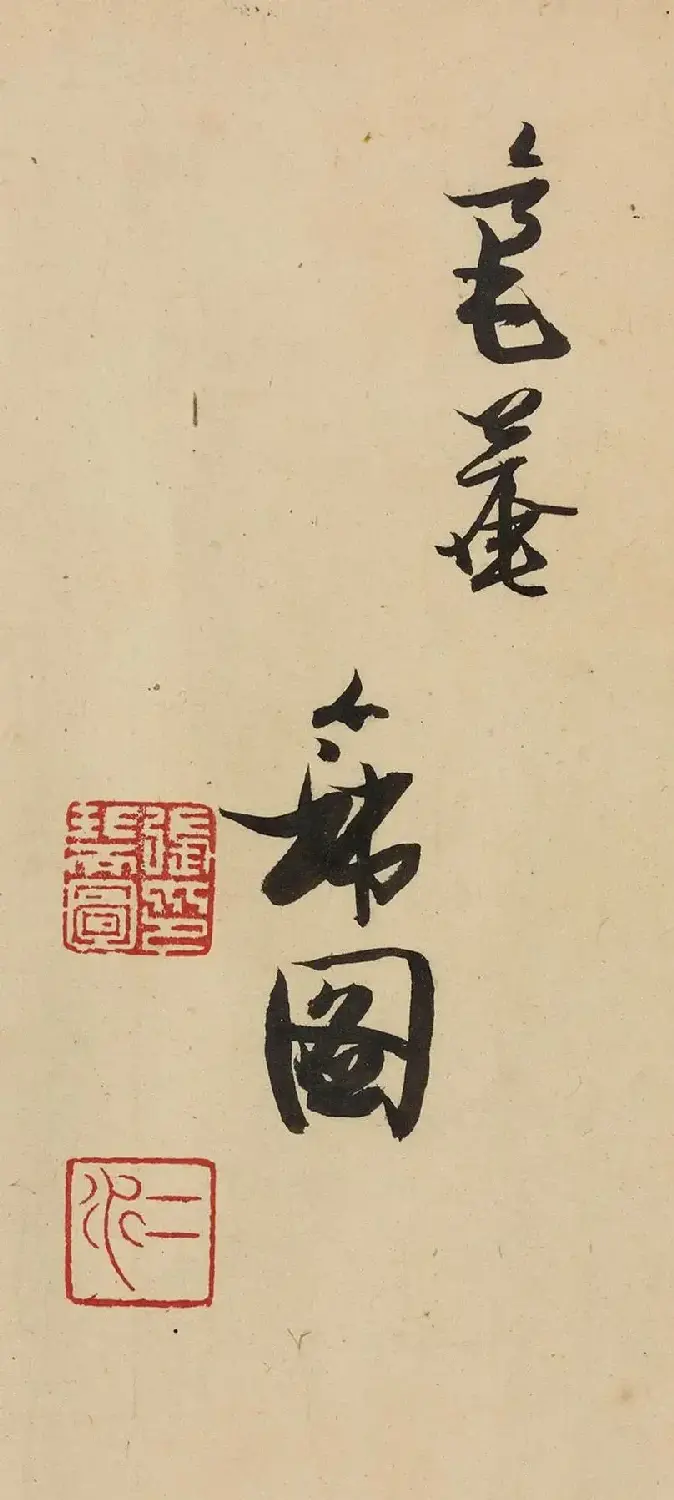 毫菴
瑞圖
張瑞圖印
二水